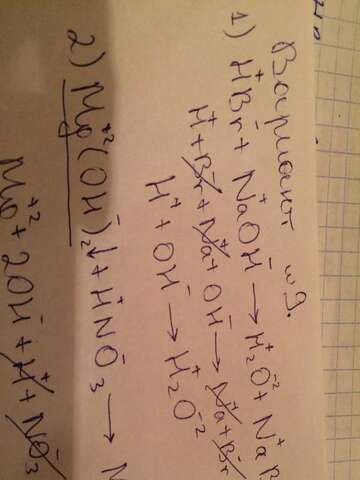 Вариант №9.
1) H⁺Br⁻ + Na⁺OH⁻ → H₂⁺O⁻² + Na⁺B
H⁺ + Br⁻ + Na⁺ + OH⁻ → Na⁺ + Br⁻
H⁺ + OH⁻ → H₂⁺O⁻²
2) Mg⁺²(OH)₂⁻↓ + H⁺NO₃⁻ →
Mg⁺² + 2OH⁻ + H⁺ + NO₃⁻